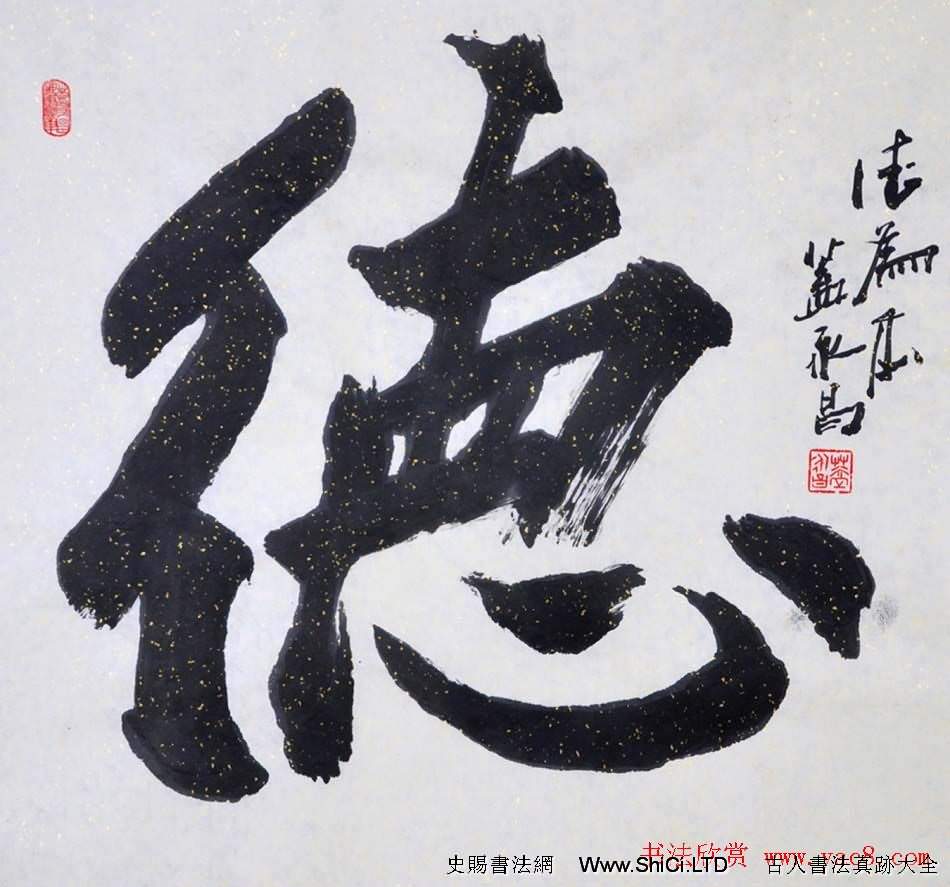 德
德為
书法欣赏 www.yac8.com
史賜書法網 Www.ShiCi.LTD 古人書法真跡大全